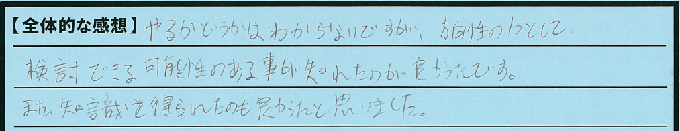 【全体的な感想】やるかどうかはわからないですが、方向性の1つとして
検討できる可能性のある事が知れたのが良かったです。
また、知識を得られたのも良かったと思いました。